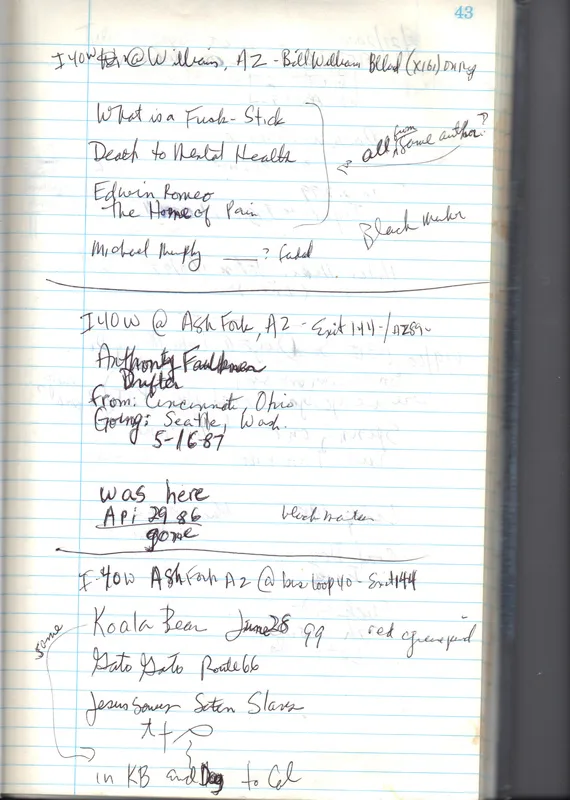 43
I40W @ Williams, AZ - Bill Williams Blvd (X161) on ry
What is a Fusk-Stick
Death to Mental Health
all from same author?
Edwin Romeo
The Home of Pain
Black marker
Michael Murphy ___? faded
I40W @ Ash Fork, AZ - Exit 144 - / AZ89 -
Anthonty Faulkner
Drifter
From: Cincinnati, Ohio
Going: Seattle, Wash.
5-16-87
was here
Api 29 86
gone
black marker
I-40W Ash Fork AZ @ bus loop 40 - Exit 144
Koala Bear June 28 99 red
same
Gato Gato Route 66
Jesus Saves Seten Slaves
in KB and Dog to Cal